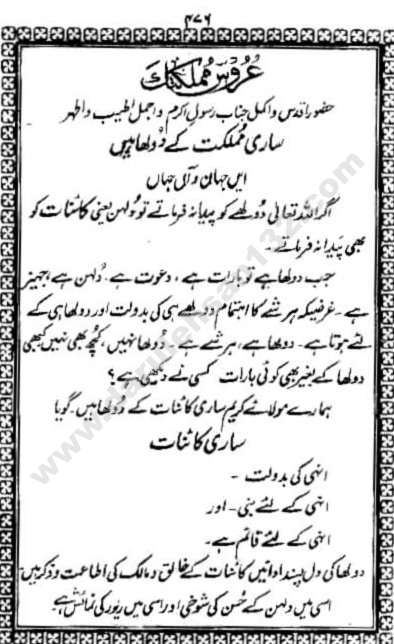 ۴۷۶
عُروسِ مُملکت
حضور اقدس و اکمل جناب رسولِ اکرم و اجمل اطیب و اطہر
ساری مُملکت کے دُولھا ہیں
ایں جہان و آں جہاں
اگر اللہ تعالیٰ دُولھے کو پیدا نہ فرماتے تو دُولہن یعنی کائنات کو
بھی پیدا نہ فرماتے۔
جب دولھا ہے تو بارات ہے، دعوت ہے۔ دُلہن ہے، جہیز
ہے۔ غرضیکہ ہر شے کا اہتمام دولھے ہی کی بدولت اور دولھا ہی کے
لئے ہوتا ہے۔ دولھا ہے، ہر شے ہے۔ دُولھا نہیں، کُچھ بھی نہیں کبھی
دولھا کے بغیر بھی کوئی بارات کسی نے دیکھی ہے؟
ہمارے مولائے کریم ساری کائنات کے دُولھا ہیں۔ گویا
ساری کائنات
انہی کی بدولت۔
انہی کے لئے بنی۔ اور
انہی کے لئے قائم ہے۔
دولھا کی دل پسند ادائیں کائنات کے خالق و مالک کی اطاعت و ذکر ہیں۔
اسی میں دلہن کے حُسن کی شوخی اور اسی میں زیور کی نمائش ہے۔